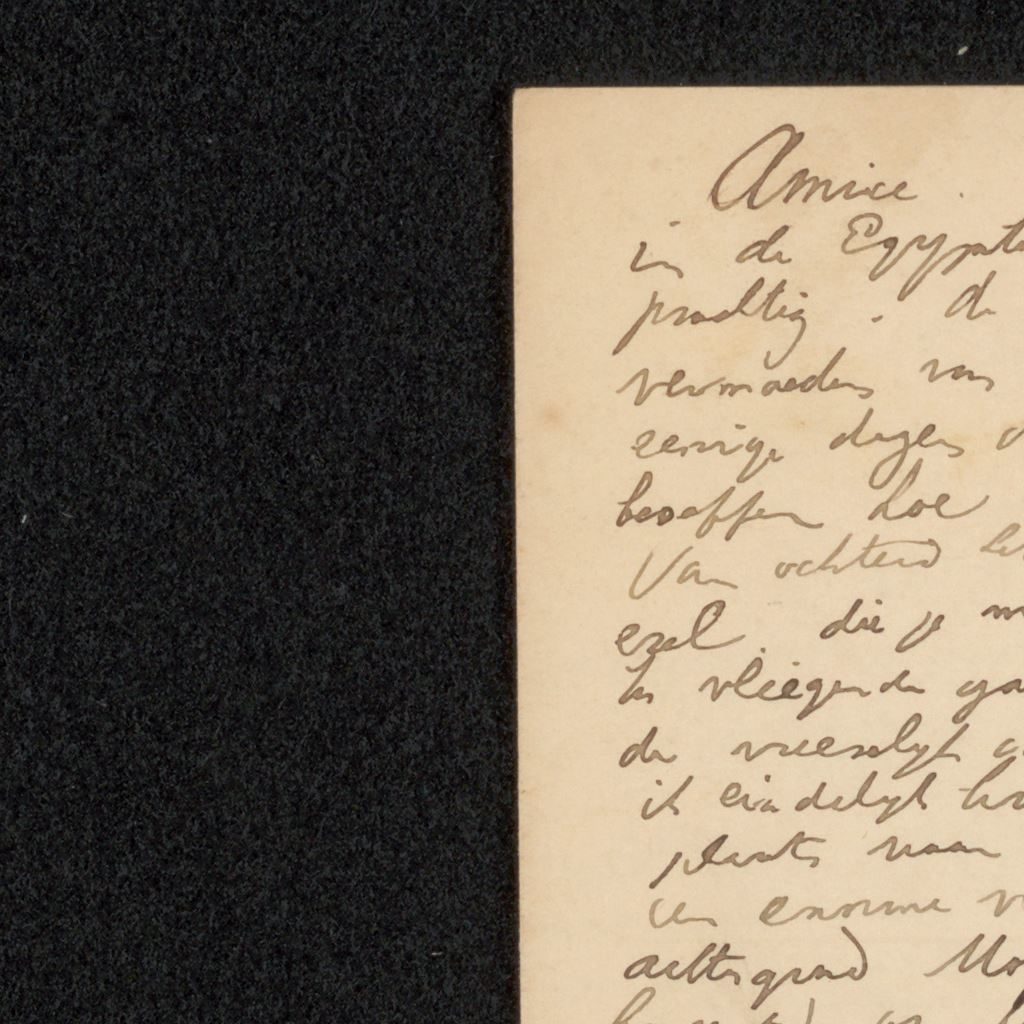 Amice.
in de Egypte
prachtig. de
vermoeden van
eenige dagen
beseffen hoe
Van ochtend
ezel. die je
in vliegende ga
de vreeselijk
ik eindelijk
plaats naar
een enorme
achtergrond Mo